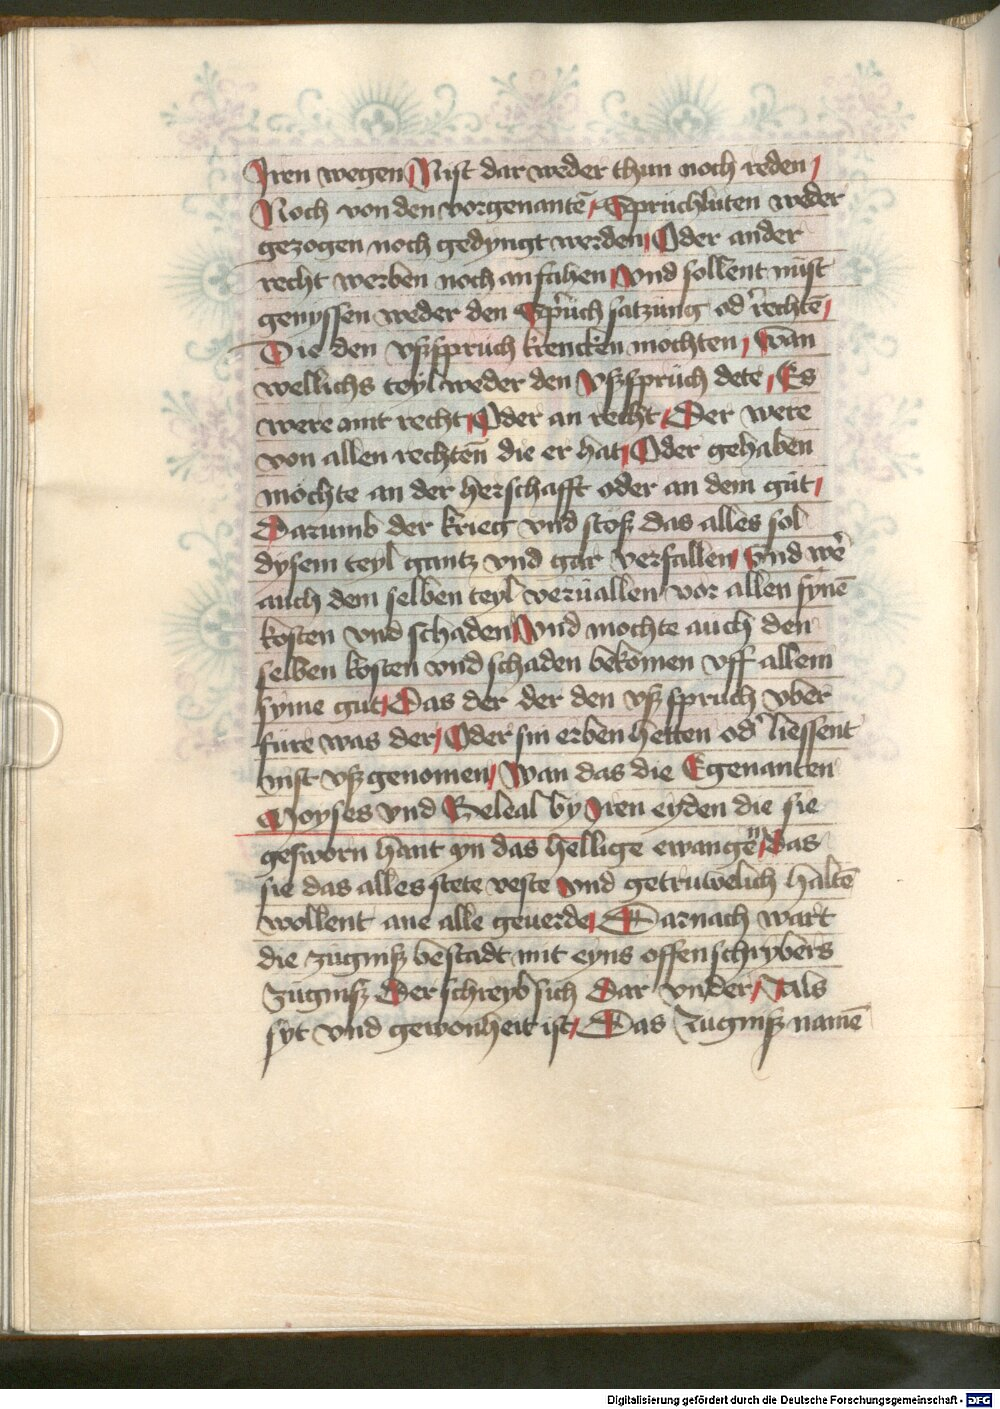 Iren wegen / Nist dar weder thun noch reden /
Noch von den vorgenantē / Sprüchluten weder
gezogen noch gedyngt werden / Oder ander
recht werben noch anfahen / Vnd sollent nüst
genyssen weder den Sprüch satzüng od' rechtē /
Die den vßsprüch krencken mochten / wan
wellichs teyl weder den vßsprüch dete / Es
were mit recht / Oder an recht / Der were
von allen rechten die er hat / Oder gehaben
möchte an der herschafft oder an dem güt /
Darumb der krieg vnd stoß das alles sol
dysem teyl gantz vnd gar verfallen / vnd wē
auch dem selben teyl verüallen vor allen synē
kosten vnd schaden / Vnd mochte auch den
selben kosten vnd schaden bekomen vff allem
syme gut / Das der der den vßspruch vber
füre was der / Oder sin erben hetten od' liessent
nist vß genomen / Wan das die Egenanten
Moyses vnd Beleal by Iren eyden die sie
gesworn hant yn das hellige ewangē / Das
sie das alles stete veste vnd getruwelich haltē
wollent ane alle geuerde / Darnach wart
die zügniß bestadt mit eyns offenschrybers
zügniß Der schreyb sich Dar vnder / Als
syt vnd gewonheit ist / Das zügniß namē
Digitalisierung gefördert durch die Deutsche Forschungsgemeinschaft - DFG